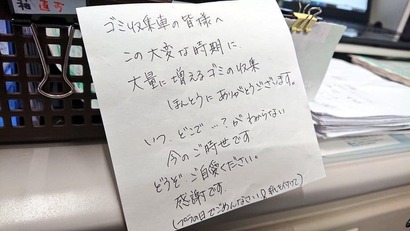 ゴミ収集車の皆様へ
この大変な時期に
大量に増えるゴミの収集
ほんとうにありがとうございます。
いつ、どこで…?がわからない
今のご時世です
どうぞご自愛ください。
感謝です
(プラの日でごめんなさい